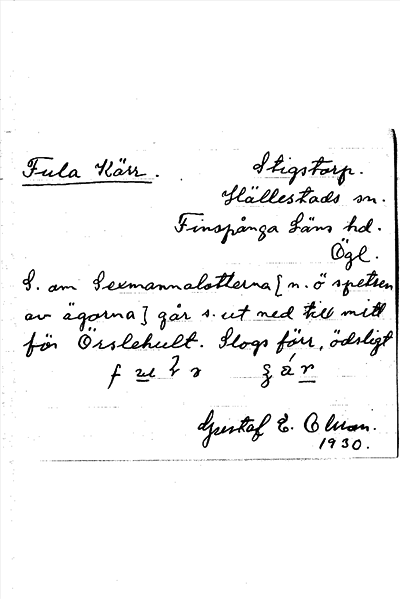 Fula Kärr.
Stigstorp.
Hällestads sn.
Finspånga Läns hd.
Ögl.
S. om Sexmannalotterna [n. ö spetsen
av ägorna] går s. ut ned till mitt
för Örslehult. Slogs förr, ödsligt
Gustaf E. Olsson.
1930.